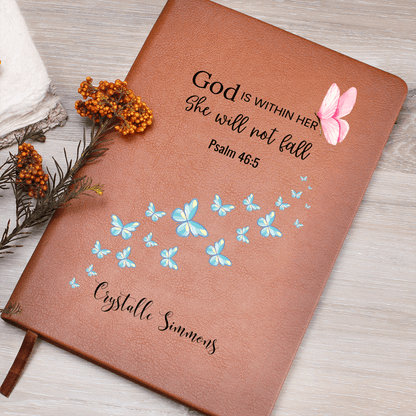 God IS WITHIN HER
She will not fall
Psalm 46:5
Crystalle Simmons